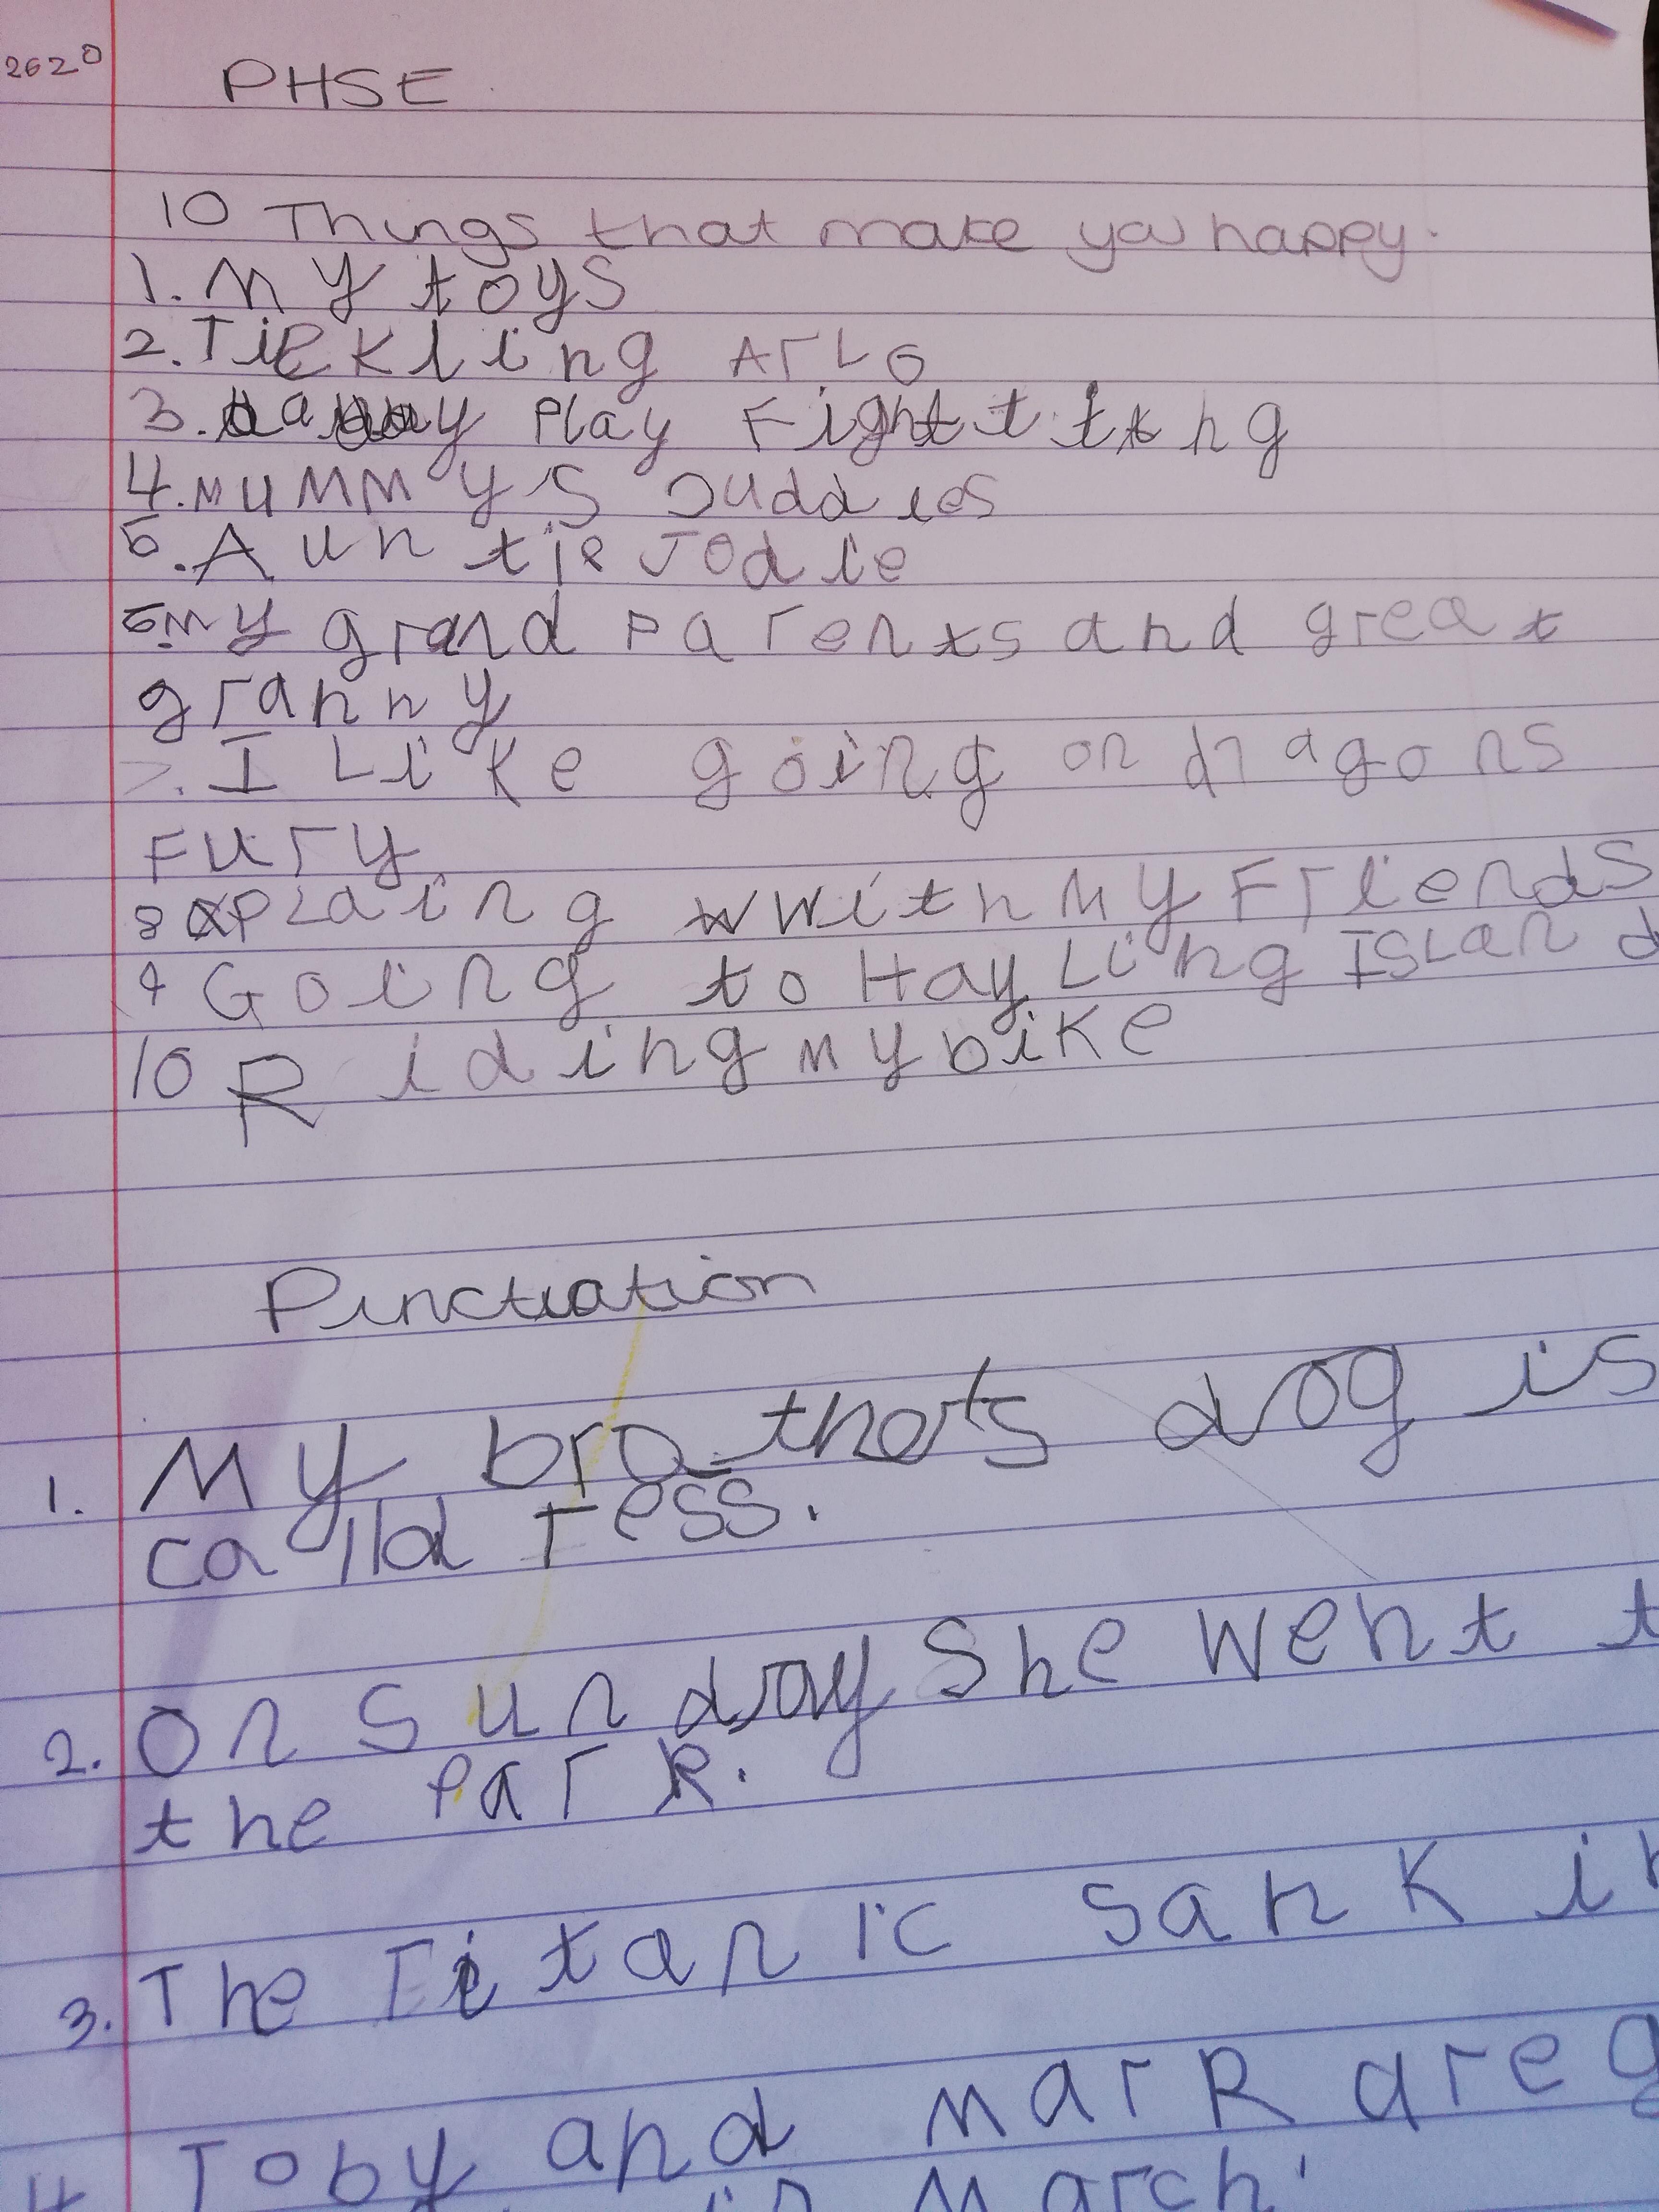 2620
PHSE
10 Things that make you happy.
1. My toys
2. Tickling Arlo
3. play Fighttting
4. Mummys Cuddles
5. Auntie Jodie
6. My grand parents and great
granny
7. I Like going on dragons
Fury
8 PLaing wwith My Friends
9 Going to HayLing IsLand
10 Riding my bike
Punctuation
1. My brother's dog is
calld Tess.
2. On Sunday She went t
the park.
3. The Titanic sank in
4. Toby and Mark are g
in March.